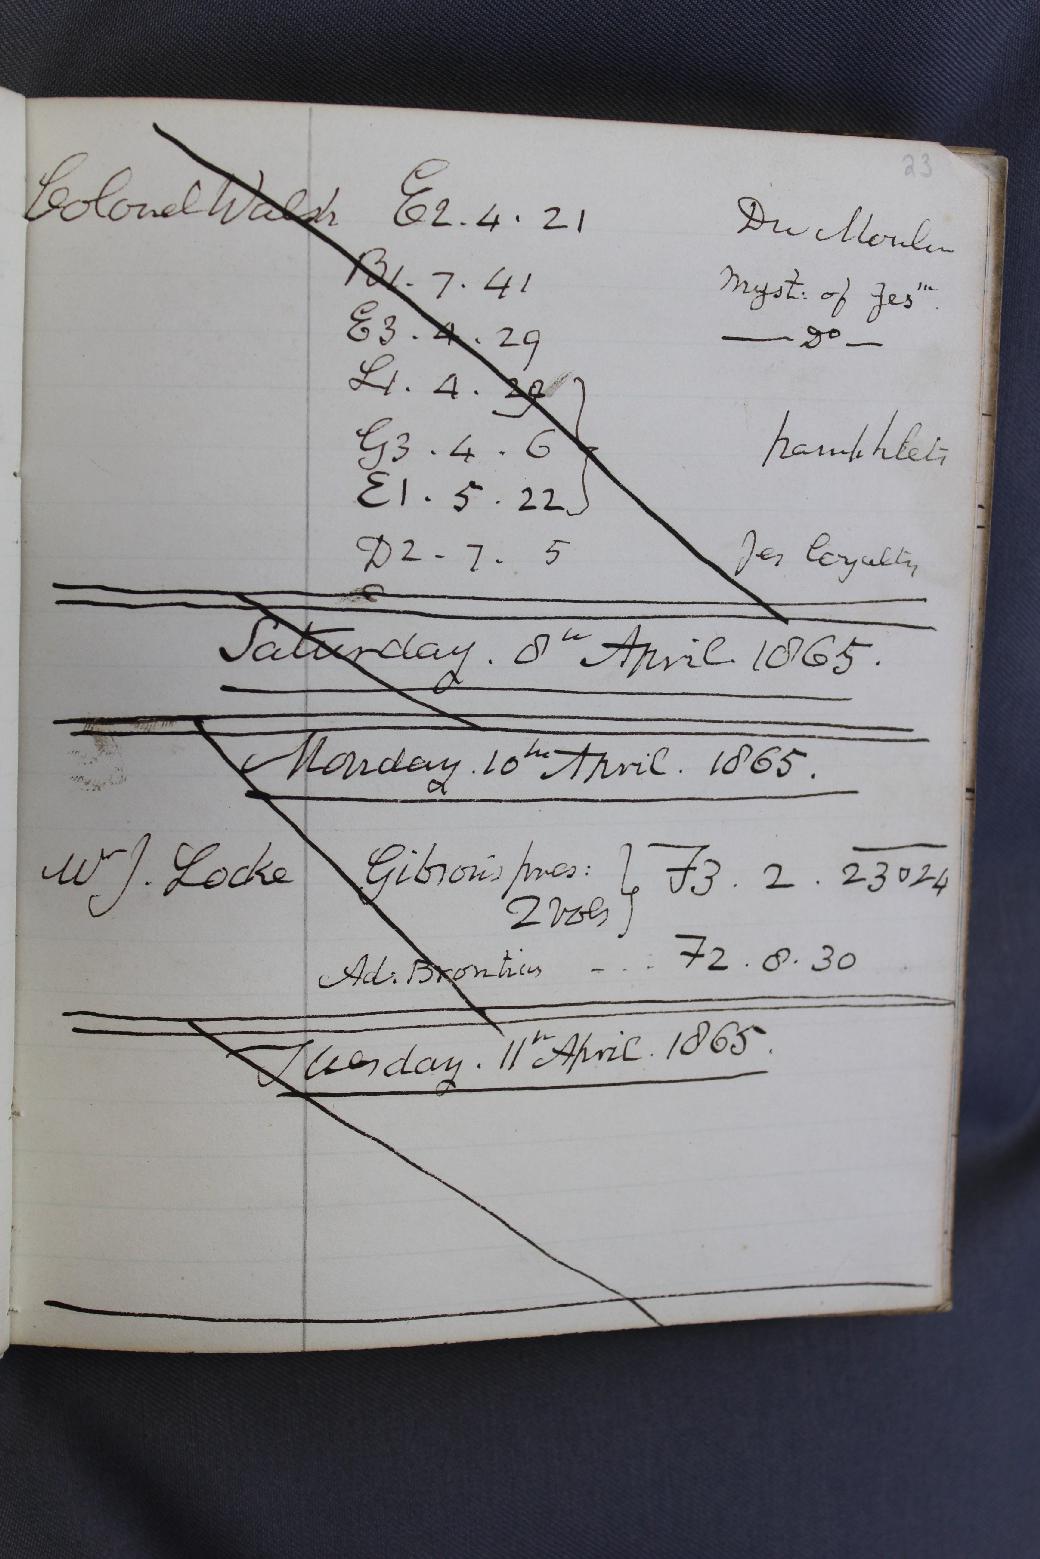 23
Colonel Walsh E2. 4. 21 Du Moulin
B1. 7. 41 Myst: of Jes^m.
E3. 4. 29 — D^o —
L1. 4. 29
G3. 4. 6 pamphlets
E1. 5. 22
D2 - 7. 5 Jes loyalty
Saturday. 8^th April. 1865.
Monday. 10^th April. 1865.
W^r J. Locke Gibson's pres: F3. 2. 23 24
2 vols
Ad. Brontius - . . . F2. 8. 30
Tuesday. 11^th April. 1865.